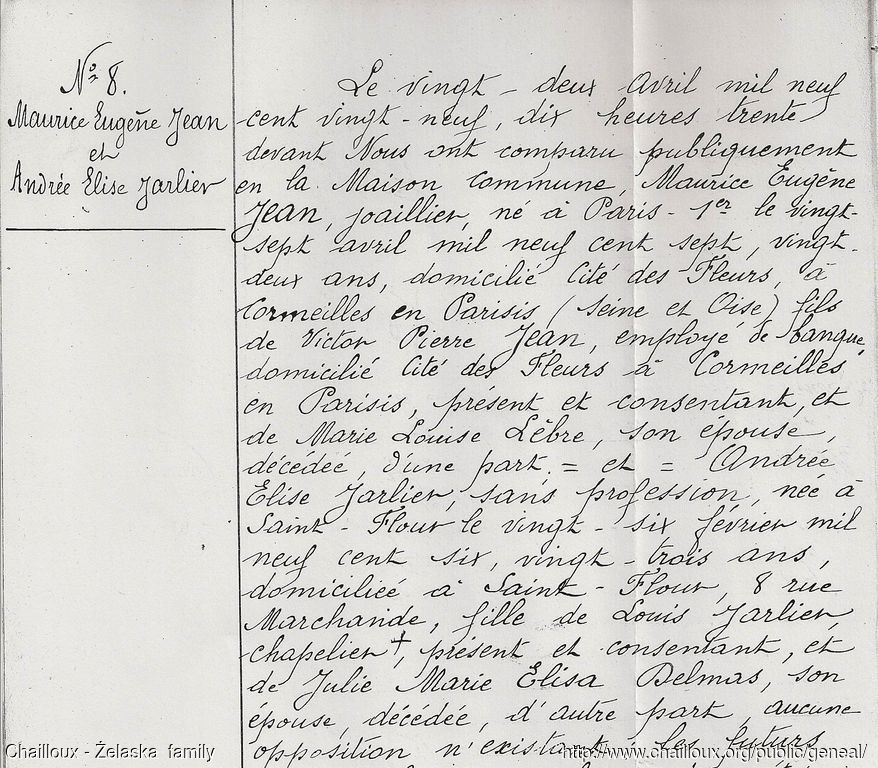 N° 8.
Maurice Eugène Jean
et
Andrée Elise Jarlier
Le vingt-deux Avril mil neuf
cent vingt-neuf, dix heures trente
devant Nous ont comparu publiquement
en la Maison Commune, Maurice Eugène
Jean, joaillier, né à Paris-1er le vingt-
sept avril mil neuf cent sept, vingt-
deux ans, domicilié Cité des Fleurs, à
Cormeilles en Parisis (Seine et Oise) fils
de Victor Pierre Jean, employé de banque,
domicilié Cité des Fleurs à Cormeilles
en Parisis, présent et consentant, et
de Marie Louise Lèbre, son épouse,
décédée, d'une part. = et = Andrée
Elise Jarlier, sans profession, née à
Saint-Flour le vingt-six février mil
neuf cent six, vingt-trois ans,
domiciliée à Saint-Flour, 8 rue
Marchande, fille de Louis Jarlier,
chapelier+, présent et consentant, et
de Julie Marie Elisa Delmas, son
épouse, décédée, d'autre part, aucune
opposition n'existant les futurs
Chailloux - Želaska family
http://www.chailloux.org/public/geneal/